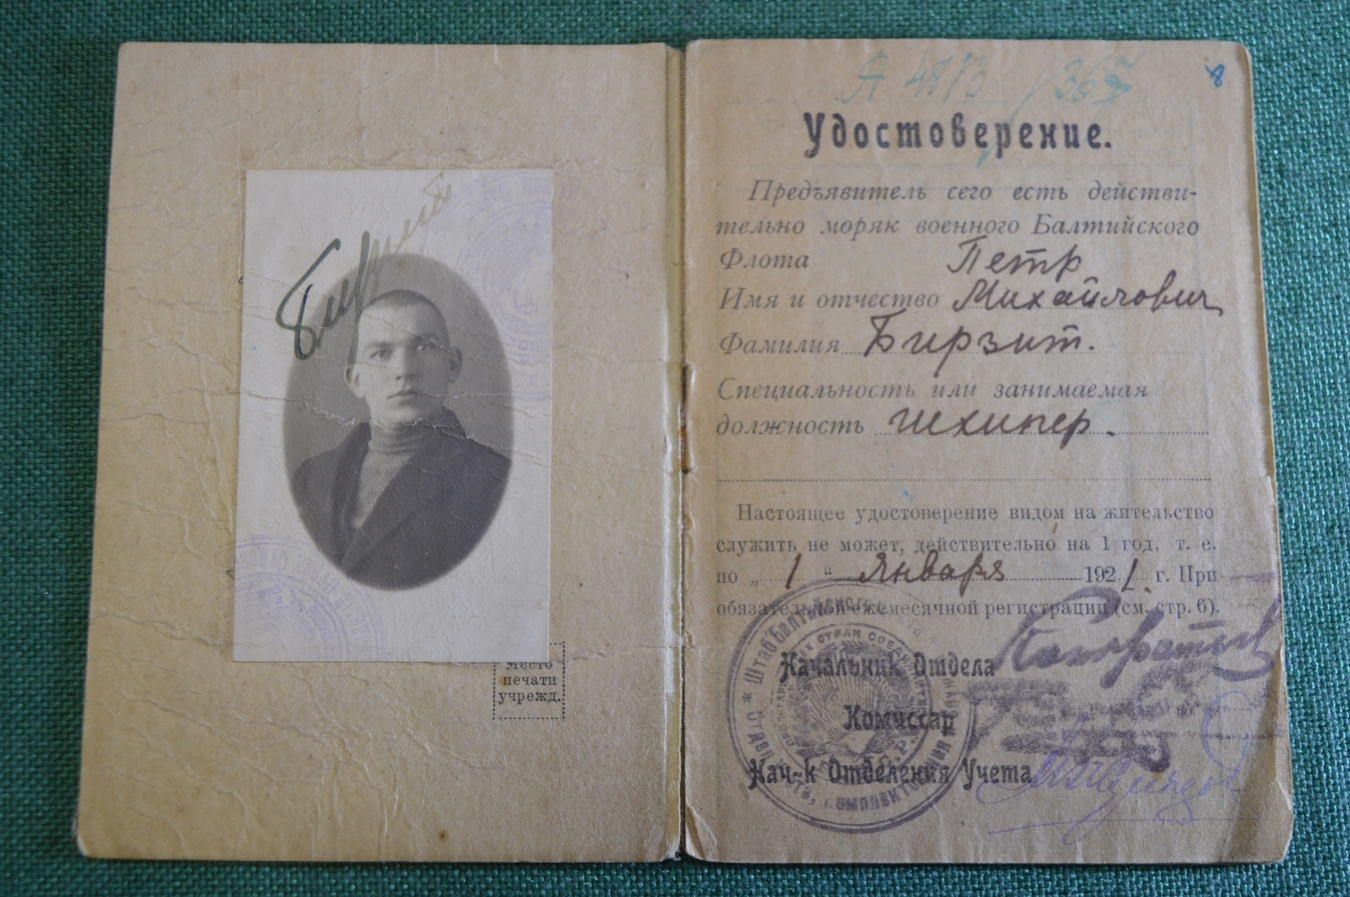 Бирзит
Место
печати
учрежд.
8
Удостоверение.
Предъявитель сего есть действи-
тельно моряк военного Балтийского
Флота Петр
Имя и отчество Михайлович
Фамилия Бирзит.
Специальность или занимаемая
должность шкипер.
Настоящее удостоверение видом на жительство
служить не может, действительно на 1 год, т. е.
по „ 1 “ Января 1921. г. При
обязательной ежемесячной регистрации (см. стр. 6).
Начальник Отдела
Комиссар
Нач-к Отделения Учета
Штаб Балтийского